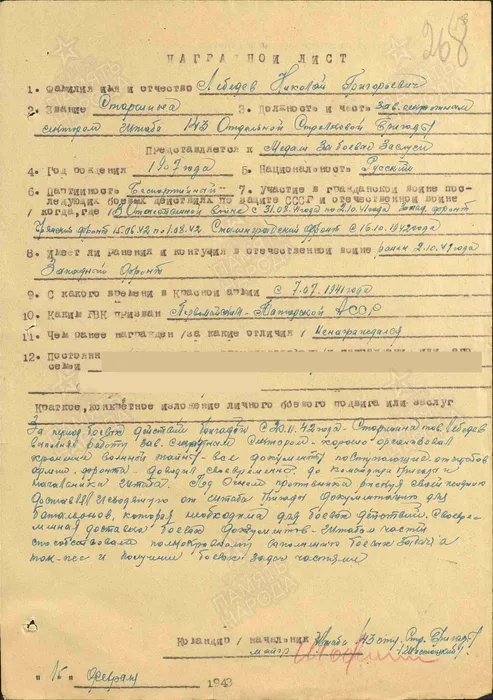 268
НАГРАДНОЙ ЛИСТ
1. Фамилия имя и отчество Лебедев Николай Григорьевич
2. Звание Старшина 3. Должность и часть зав. секретным
сектором Штаба 143 Отдельной Стрелковой Бригады
Представляется к Медали За боевые Заслуги
4. Год рождения 1907 года 5. Национальность Русский
6. Партийность Беспартийный 7. Участие в гражданской войне пос-
ледующих боевых действиях по защите СССР и отечественной войне
когда, где В Отечественной войне с 31.08.41 года по 2.10.41 года Запад. фронт
Брянский фронт 15.06.42 по 1.08.42 Сталинградский фронт с 16.10.1942 года
8. Имеет ли ранения и контузии в отечественной войне ранен 2.10.41 года
Западный Фронт
9. С какого времени в Красной армии с 7.07.1941 года
10. Каким РВК призван Первомайским Татарской АССР
11. Чем ранее награжден /за какие отличия/ Ненаграждался
12. Постоян
семьи
Краткое, конкретное изложение личного боевого подвига или заслуг
За период боевых действий бригадой с 20.11.42 года - Старшина тов. Лебедев
выполняя работу зав. секретным сектором - хорошо организовал
хранение военной тайны - все документы поступающие от штабов
армии, фронта - доводил своевременно до командира бригады и
начальника штаба. Под огнем противника рискуя своей жизнью
доставлял исходящую от штаба бригады документацию для
батальонов, которая необходима для боевых действий. Своевре-
менная доставка боевых документов - штабам частей
способствовала выполнению боевых задач
и получении боевых задач частями
Командир / начальник Штаба 143 отд. стр. бригады
майор
" 16 " Февраля 1943
ПАМЯТЬ НАРОДА